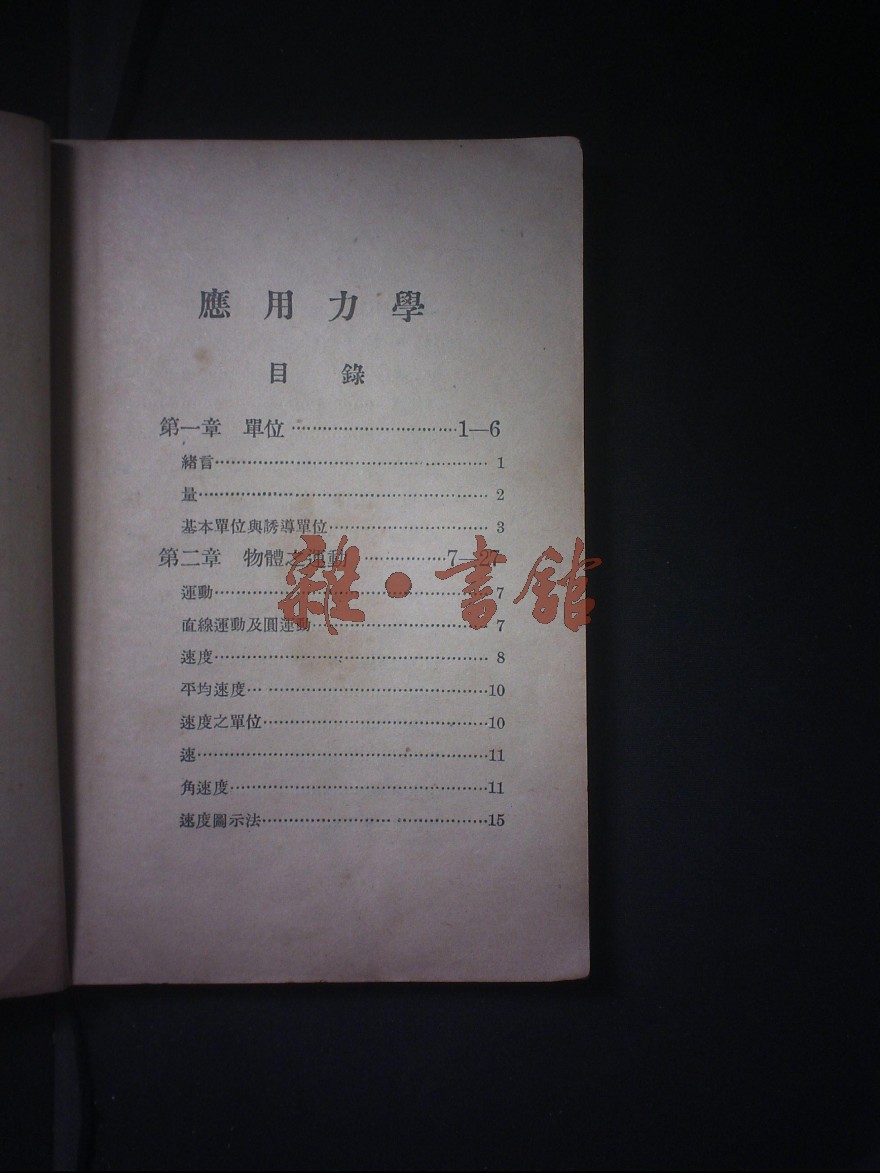 應用力學
目錄
第一章 單位……………………………1—6
緒言…………………………………………… 1
量……………………………………………… 2
基本單位與誘導單位………………………… 3
第二章 物體之運動 ……………7—27
運動…………………………………………… 7
雜·書舘
直線運動及圓運動…………………………… 7
速度…………………………………………… 8
平均速度… ……………………………………10
速度之單位……………………………………10
速………………………………………………11
角速度…………………………………………11
速度圖示法…………………… ………………15